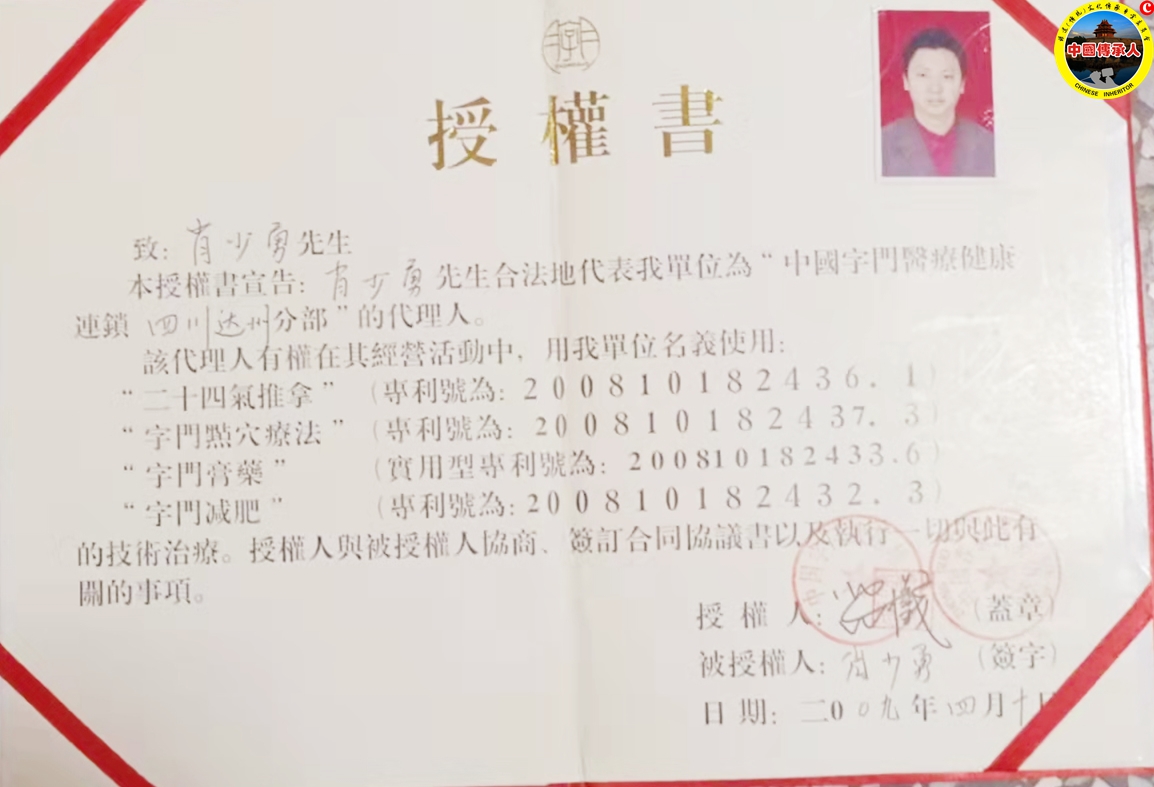 中國傳承人
CHINESE INHERITOR
授權書
致：肖少勇先生
本授權書宣告：肖少勇先生合法地代表我單位為“中國字門醫療健康
連鎖 四川达州分部”的代理人。
該代理人有權在其經營活動中，用我單位名義使用：
“二十四氣推拿”（專利號為：200810182436.1）
“字門點穴療法”（專利號為：200810182437.3）
“字門膏藥”（實用型專利號為：200810182433.6）
“字門减肥”（專利號為：200810182432.3）
的技術治療。授權人與被授權人協商、簽訂合同協議書以及執行一切與此有
關的事項。
授權人：（蓋章）
被授權人：肖少勇（簽字）
日期：二00九年四月十日